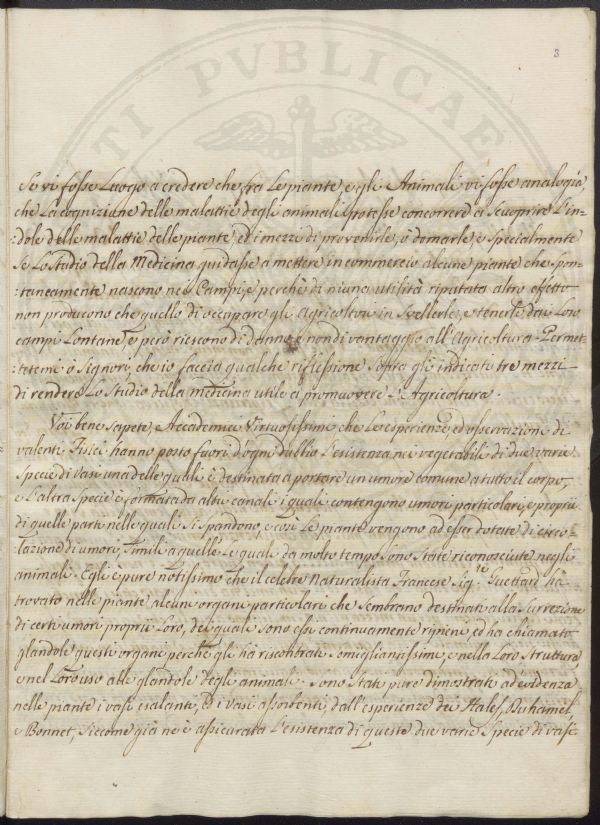 PUBLICAE
3
Se vi fosse Luogo a credere che fra Le piante, e gli Animali vi fosse analogia,
che La cognizione delle malattie degli animali potesse concorrere a scuoprire L'in=
:dole delle malattie delle piante, ed i mezzi di provenirle, ò domarle, e specialmente
se Lo Studio della Medicina guidasse a mettere in commercio alcune piante che spon=
:taneamente nascono nei Campi, e perchè di niuna utilità riputate altro effetto
non producono che quello di occupare gli Agricoltori in Svellerle, e tenerle dai Loro
campi Lontane, e però riescono di danno, e non di vantaggio all'Agricoltura. Permet=
:tetemi ò Signori, che io faccia qualche riflessione sopra gli indicati tre mezzi
di rendere Lo Studio della medicina utile a promuovere L'Agricoltura.
Voi bene sapete, Accademici Virtuosissimi che Le esperienze, ed osservazioni di
valenti Fisici hanno posto fuori d'ogni dubbio L'esistenza nei vegetabili di due varie
Specie di vasi una delle quali è destinata a portare un umore comune a tutto il corpo,
e L'altra specie è formata da altri canali i quali contengono umori particolari, e proprii
di quelle parti nelle quali si spandono, e così Le piante vengono ad esser dotate di circo=
lazione di umori, simile a quella Le quale da molto tempo sono state riconosciute negli
animali. Egli è pure notissimo che il celebre naturalista Francese Sig.re Guettard ha
trovato nelle piante alcuni organi particolari che sembrano destinati alla secrezione
di certi umori proprii Loro, dei quali sono essi continuamente ripieni, ed ha chiamato
glandole questi organi perchè gli ha riscontrati somigliantissimi, e nella Loro struttura
e nel Loro uso alle glandole degli animali. Sono stati pure dimostrati ad evidenza
nelle piante i vasi esalanti, ed i vasi assorbenti dall'esperienze dei Hales, Duhamel,
e Bonnet, siccome già ne è assicurata L'esistenza di queste due varie Specie di vasi